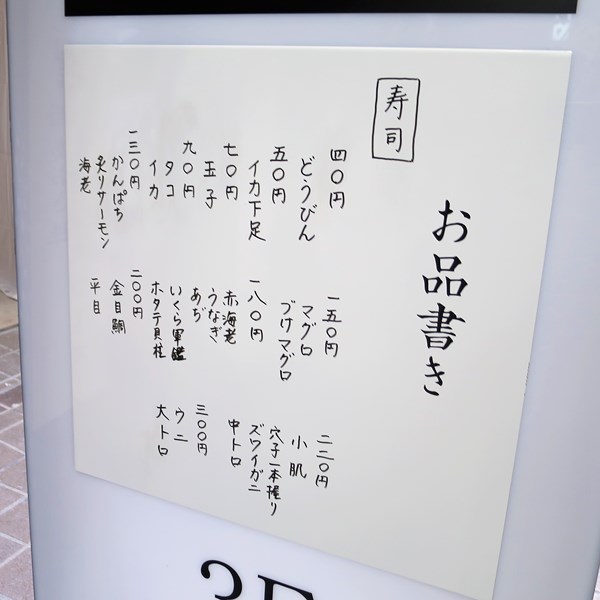 お品書き
寿司
四〇円
どうびん
五〇円
イカ下足
七〇円
玉子
九〇円
タコ
イカ
一三〇円
かんぱち
炙りサーモン
海老
一五〇円
マグロ
づけマグロ
一八〇円
赤海老
うなぎ
あぢ
いくら軍鑑
ホタテ貝柱
二〇〇円
金目鯛
平目
二二〇円
小肌
穴子一本握り
ズワイガニ
中トロ
三〇〇円
ウニ
大トロ
3F